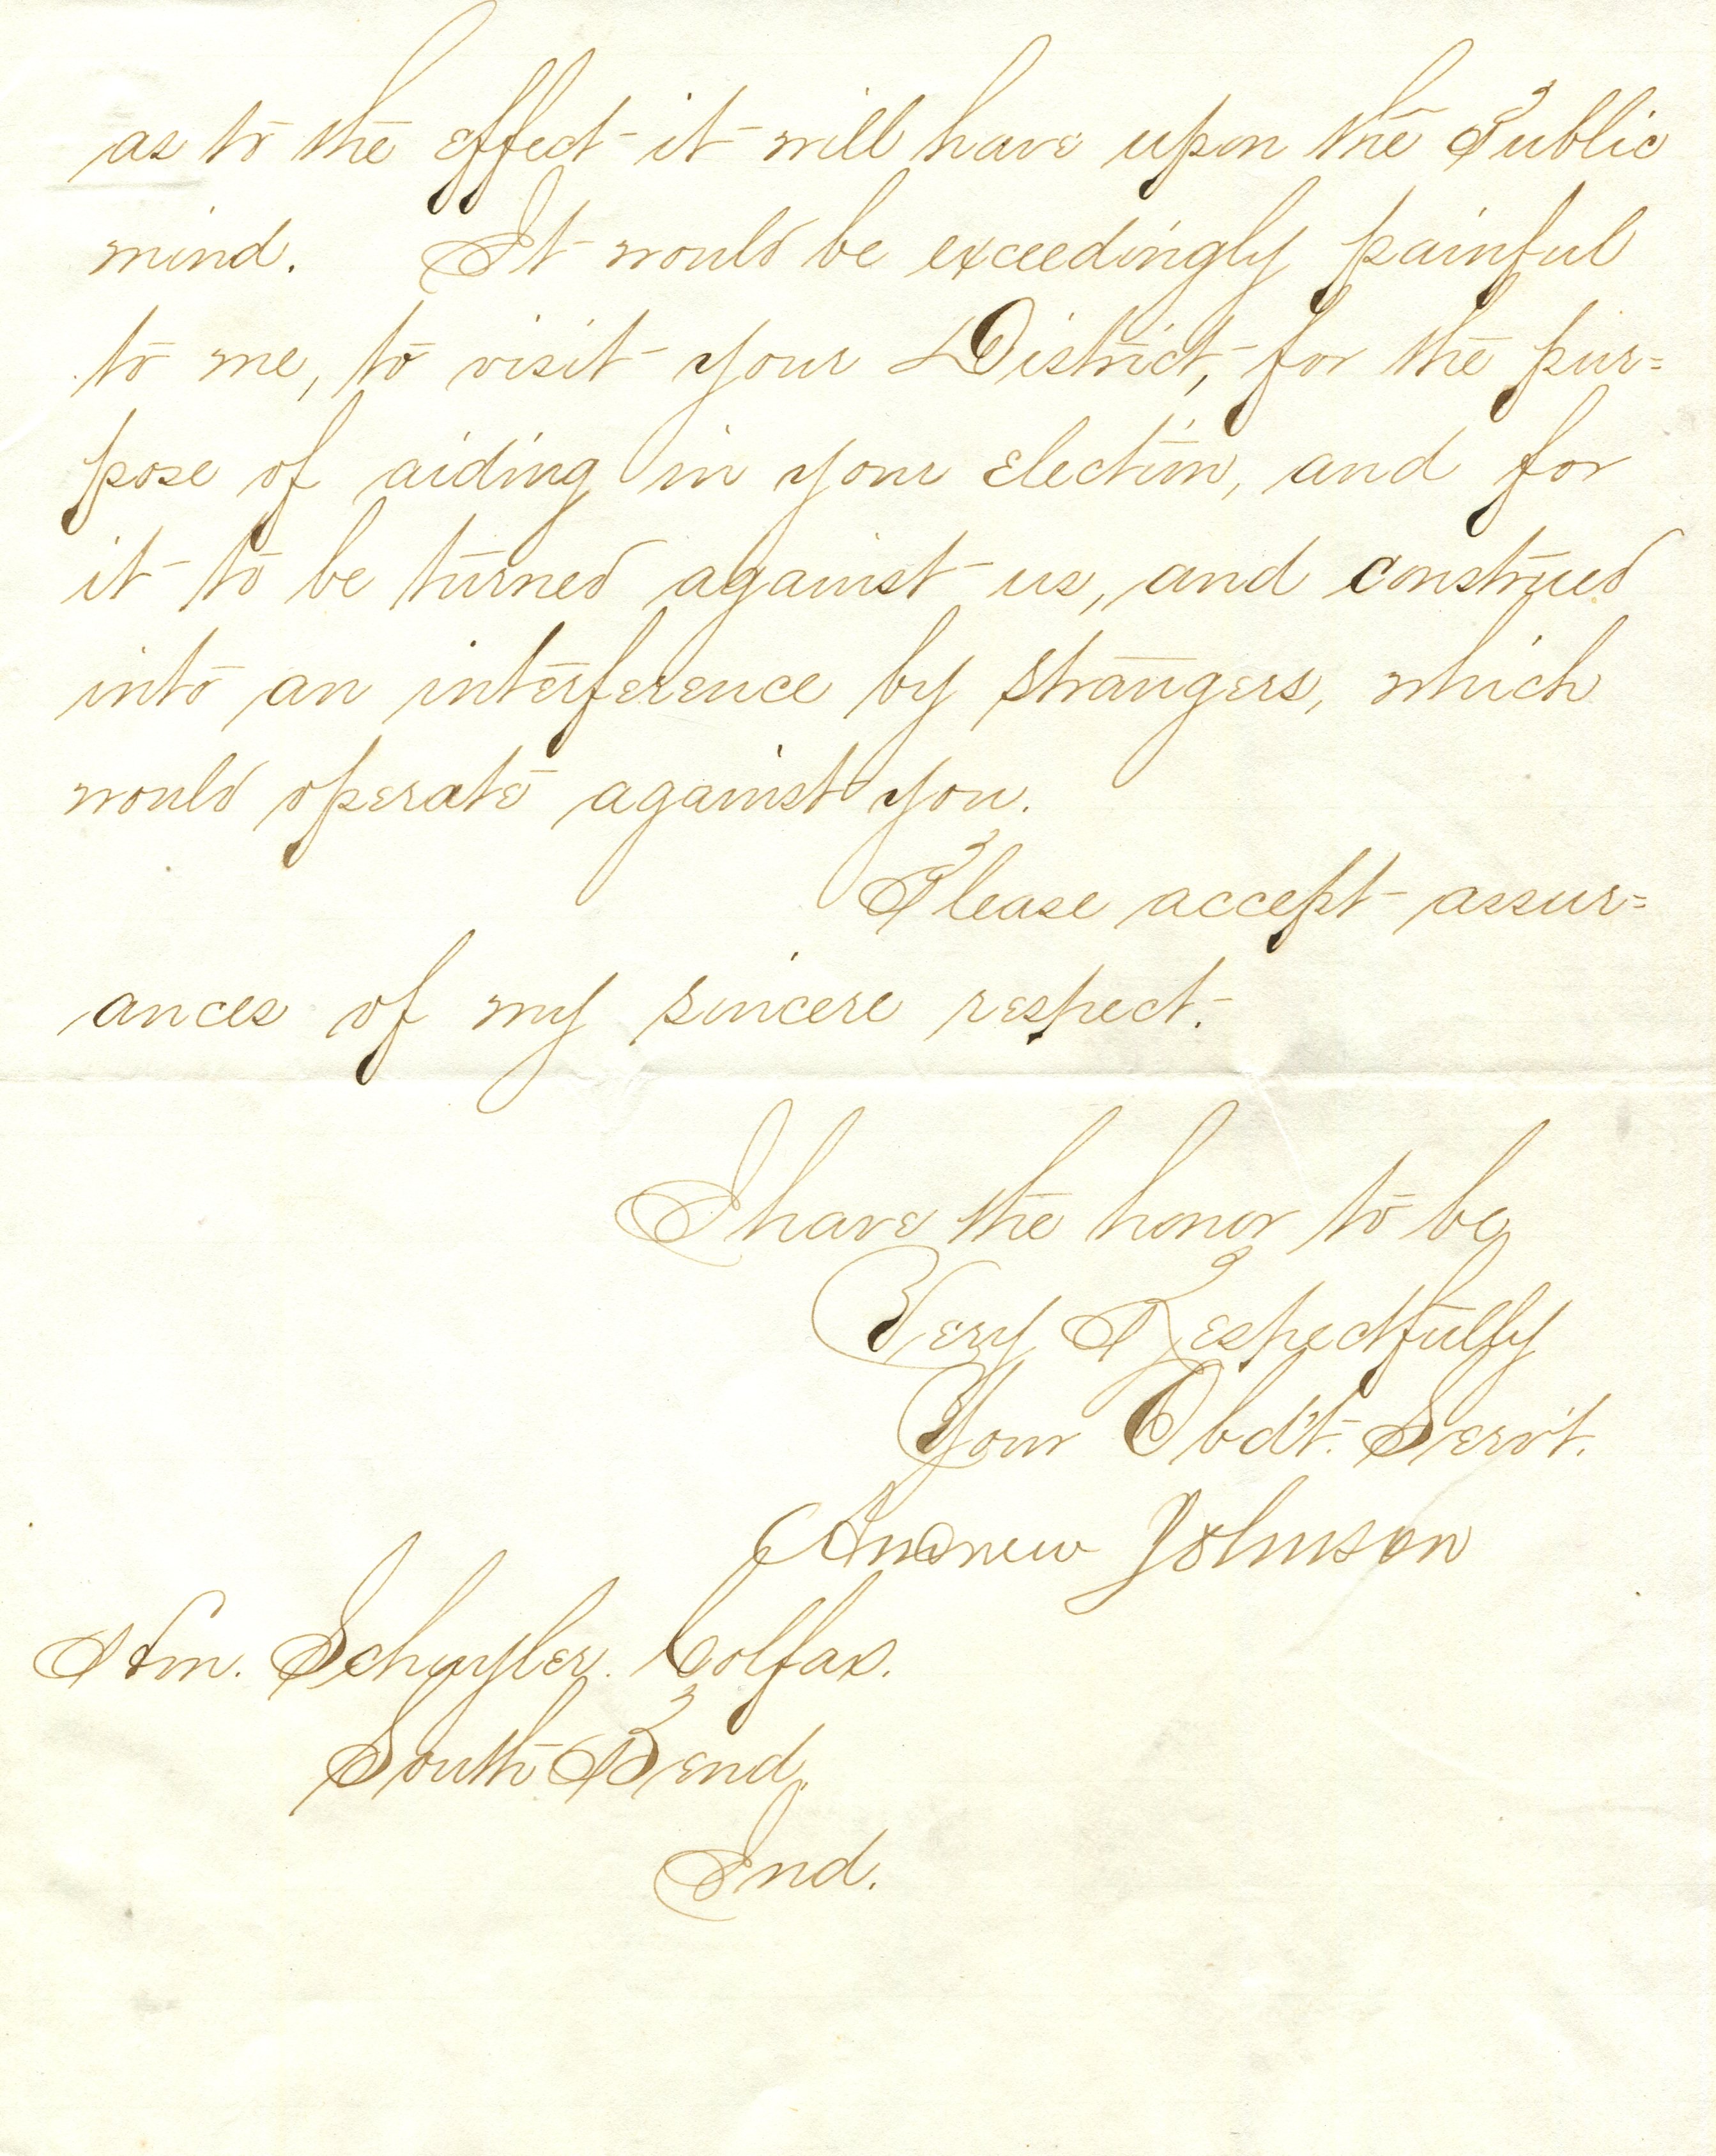 as to the effect it will have upon the Public
mind. It would be exceedingly painful
to me, to visit your District, for the pur=
pose of aiding in your election, and for
it to be turned against us, and construed
into an interference by strangers, which
would operate against you.
Please accept assur=
ances of my sincere respect.
I have the honor to be
Very Respectfully
Your Obdt. Serv't.
Andrew Johnson
Hon. Schuyler Colfax.
South Bend,
Ind.